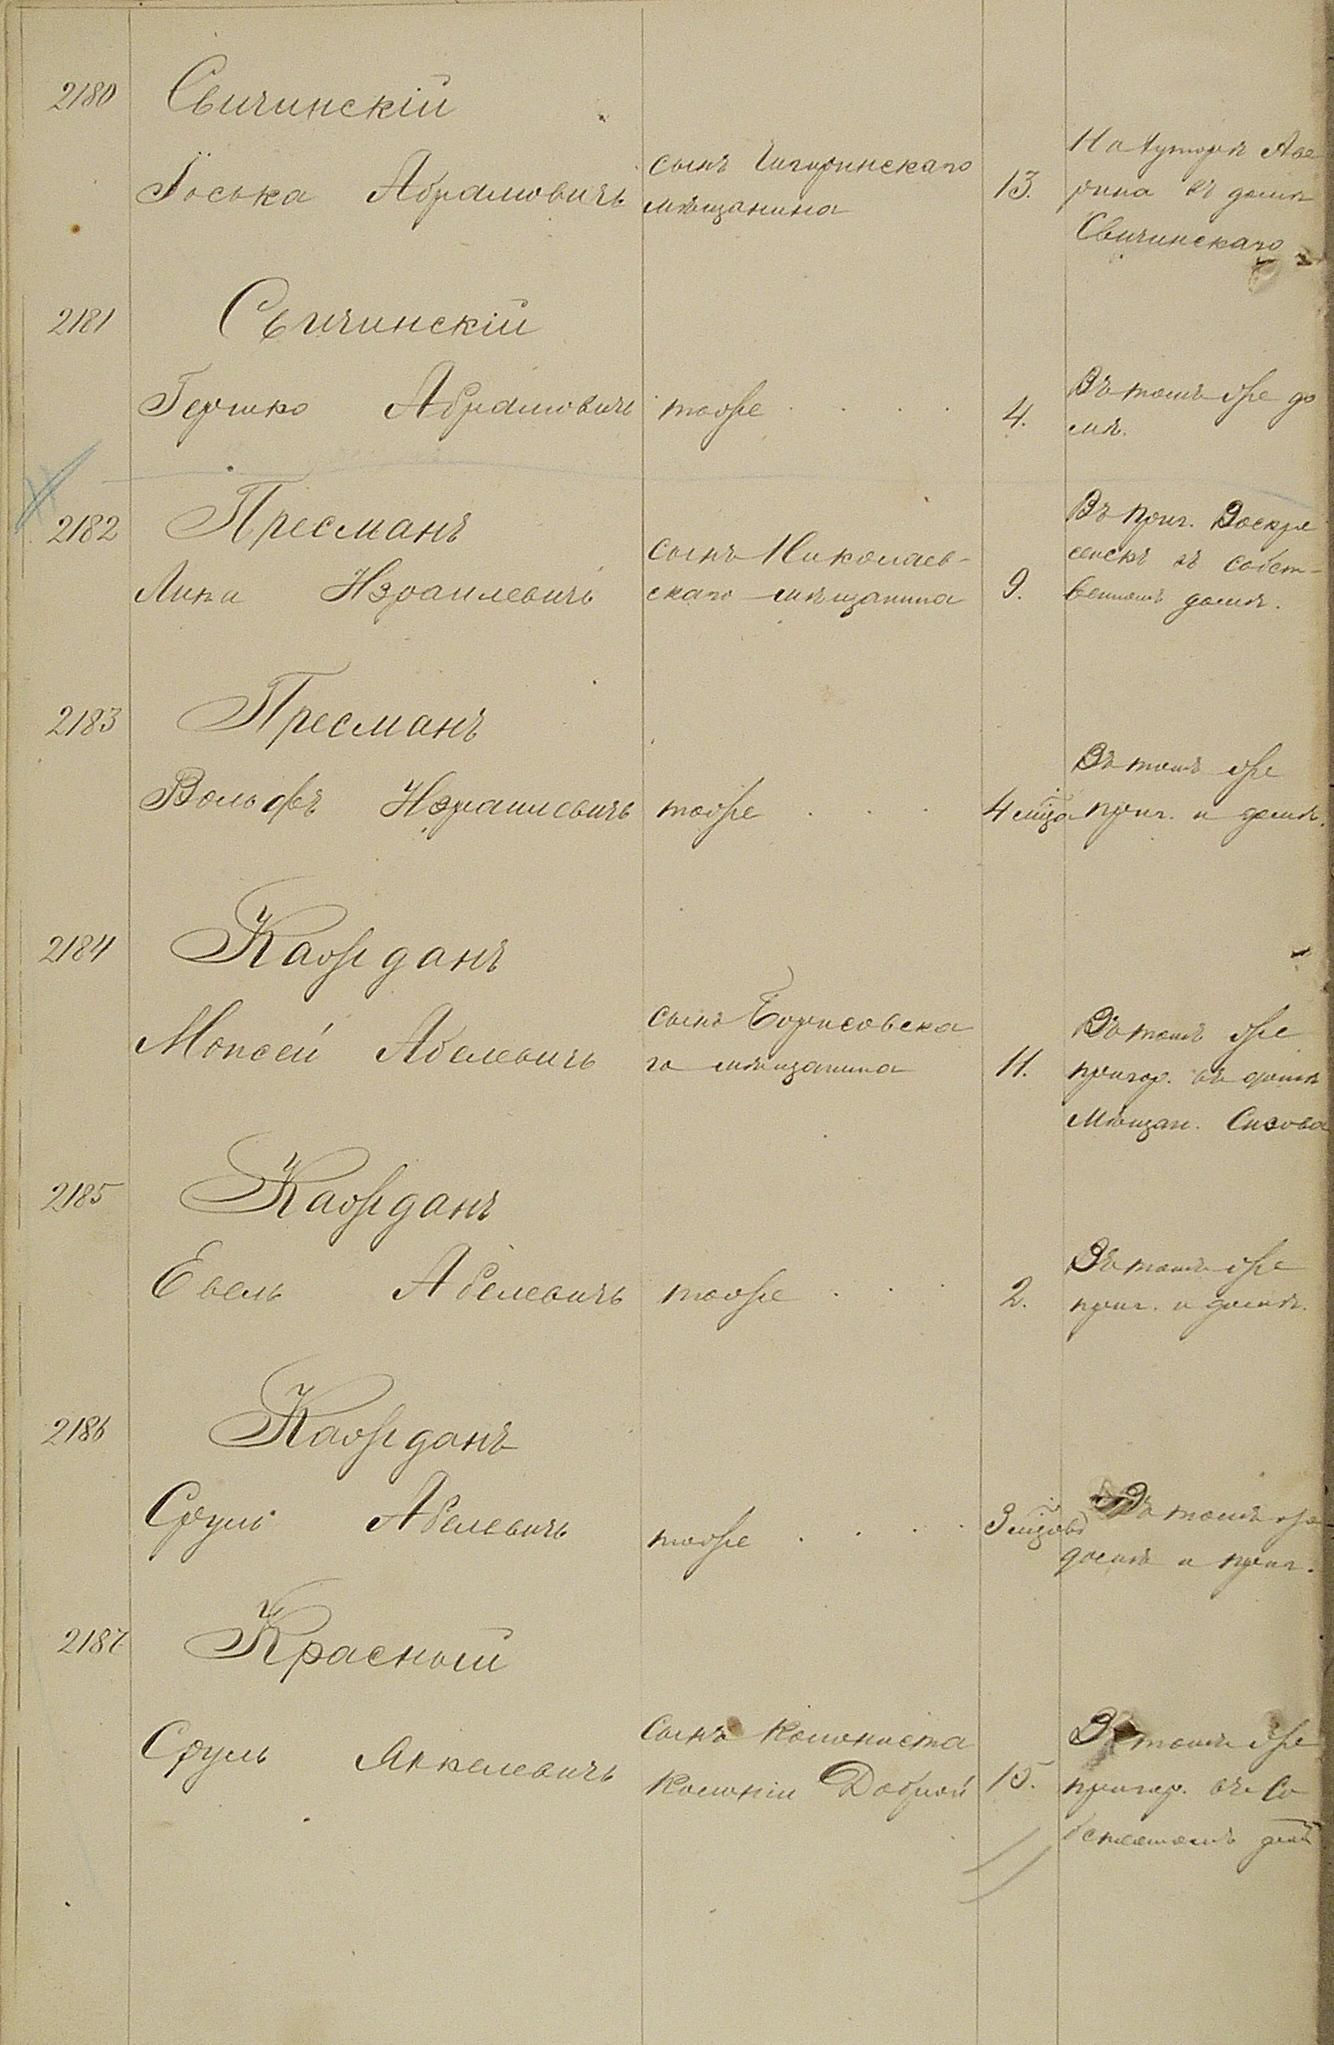 2180 Свичинскій
Іоська Абрамовичъ
сынъ Чигиринскаго
мѣщанина
13.
На Хуторѣ
въ домѣ
Свичинскаго
2181 Свичинскій
Гершко Абрамовичъ
тоже . . . .
4.
Въ томъ же до
мѣ.
2182 Пресманъ
Липа Израилевичъ
сынъ Николаев-
скаго мѣщанина
9.
Въ приг. Воскре
сенскъ въ собст-
венномъ домѣ.
2183 Пресманъ
Вольфъ Израилевичъ
тоже . . .
4 мѣца
Въ томъ же
приг. и домѣ.
2184 Кажданъ
Моисей Абелевичъ
сынъ Борисовска
го мѣщанина
11.
Въ томъ же
пригор. въ домѣ
Мѣщан. Сизова
2185 Кажданъ
Евель Абелевичъ
тоже . .
2.
Въ томъ же
приг. и домѣ.
2186 Кажданъ
Сруль Абелевичъ
тоже . . . .
3 мцовъ
Въ томъ же
домѣ и приг.
2187 Красный
Сруль Янкелевичъ
Сынъ Колониста
Колоніи Доброй
15.
Въ томъ же
пригор. въ Со
бственномъ домѣ